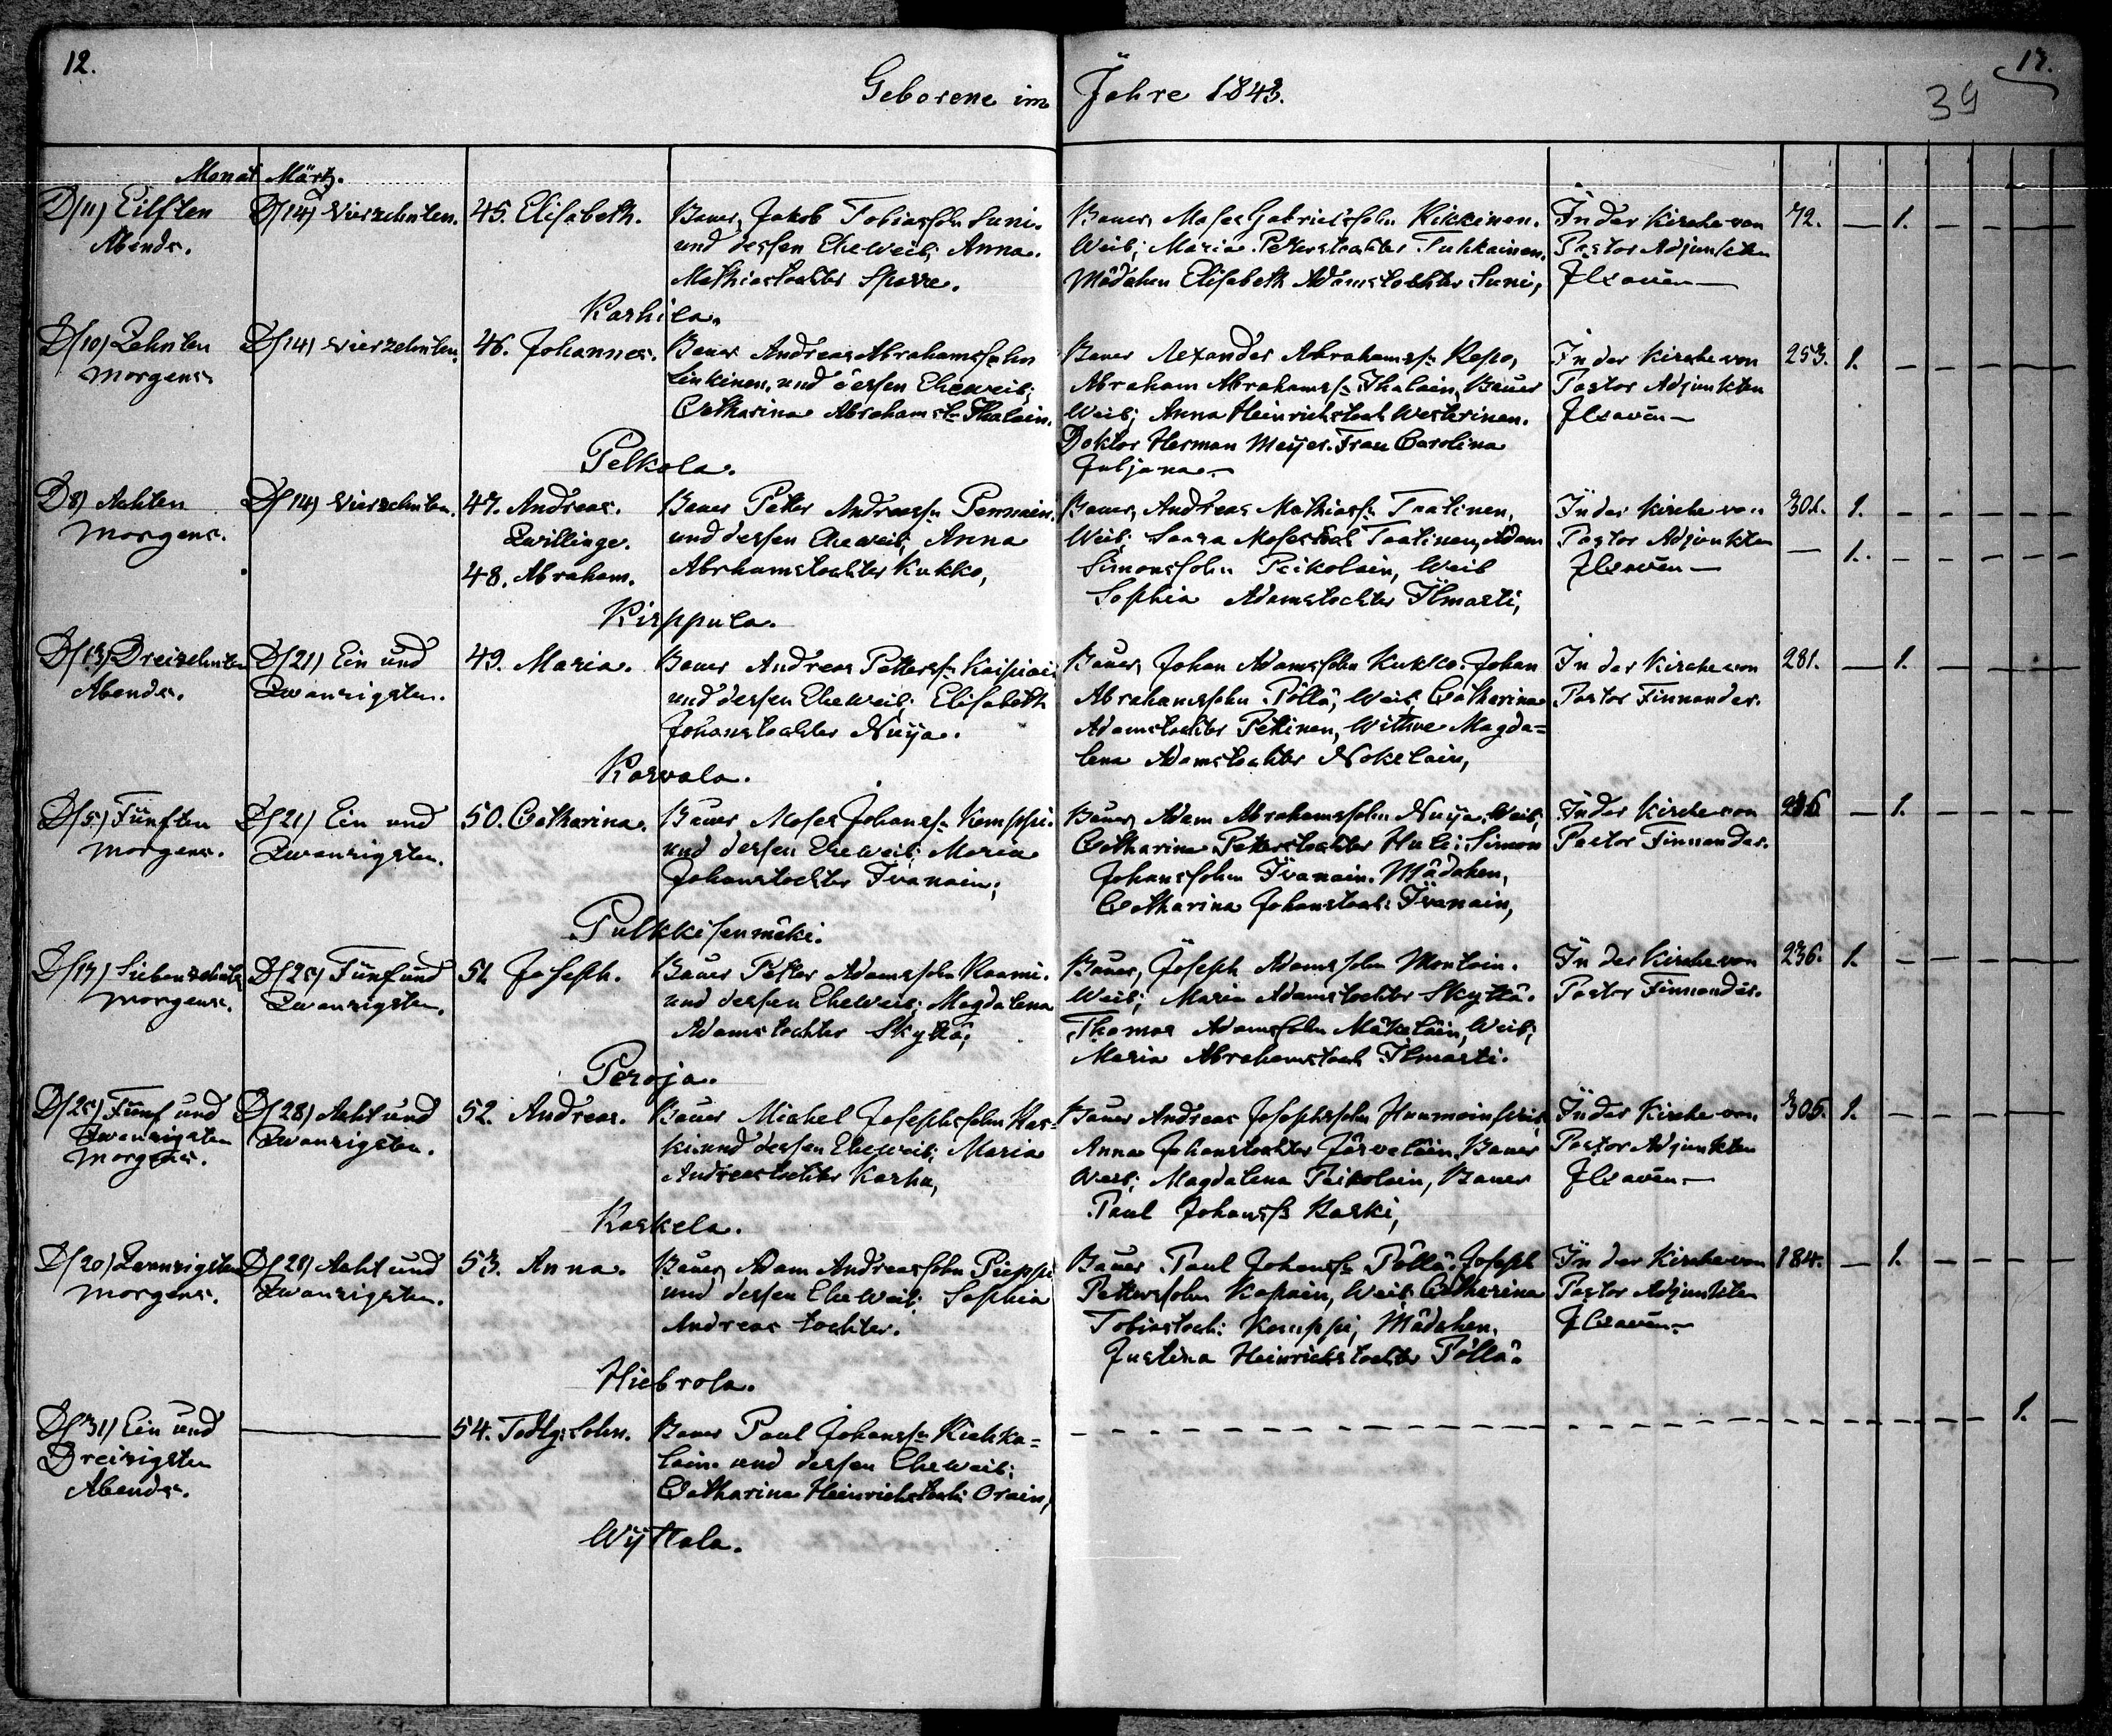 12.
17.
39
Geborene im Jahre 1843.
Monat Märtz.
D/11) Eilften
Abends.
D/14) Vierzehnten.
45. Elisabeth.
Bauer, Jakob Tobiassohn Suni.
und dessen Eheweib; Anna.
Mathiastochter Sparre.
Karhila.
Bauer, Moses Gabrielssohn Kikkinen.
Weib; Maria Petterstochter Tukkainen.
Mädchen Elisabeth Adamstochter Suni,
In der Kirche von
Pastor Adjunkten
72. — 1. — — — —
D/10) Zehnten
Morgens
D/14) Vierzehnten.
46. Johannes.
Bauer Andreas Abrahamssohn
Linkinen, und dessen Eheweib;
Catharina Abrahamst. Ihalain.
Pelkola.
Bauer Alexander Abrahamss. Repo,
Abraham Abrahamss. Ihalain, Bauer
Weib; Anna Heinrichstoch Westerinen.
Doktor Herman Meyer. Frau Carolina
Juljana.—
In der Kirche von
Pastor Adjunkten
253. 1. — — — — —
D/8) Achten
Morgens.
D/14) Vierzehnten.
47. Andreas.
Zwillinge.
48. Abraham.
Bauer Petter Andreass. Pennain.
und dessen Eheweib; Anna
Abrhamstochter Kukko,
Kirppula.
Bauer, Andreas Mathiass. Taatinen,
Weib; Saara Mosestoch Taatinen, Adam
Simonssohn Peikolain, Weib
Sophia Adamstochter Ilmasti,
In der Kirche von
Pastor Adjunkten
301. 1. — — — — —
— 1. — — — —
D/13) Dreizehnten
Abends.
D/21) Ein und
Zwanzigsten.
49. Maria.
Bauer Andreas Petterss. Kaipiai
und dessen Eheweib; Elisabeth
Johanstochter Nuija.
Korvala.
Bauer, Johan Adamssohn Kukko. Johan
Abrahamssohn Pöllä, Weib; Catharina
Adamstochter Pekinen, Wittwe Magda=
lena Adamstochter Nokelain,
In der Kirche von
Pastor Finnander.
281. — 1. — — — —
D/5) Fünften
Morgens.
D/21) Ein und
Zwanzigsten.
50. Catharina.
Bauer Moses Johanss. Kemppi.
und dessen Eheweib; Maria
Johanstochter Ivanain;
Pulkkisenmäki.
Bauer, Adam Abrahamssohn Nuija, Weib;
Catharina Petterstochter Huli; Simon
Johanssohn Ivanain. Mädchen,
Catharina Johanstoch: Ivanain,
In der Kirche von
Pastor Finnander.
— 1. — — — —
D/17) Siebenzehnten
Morgens.
D/25) Fünfund
Zwanzigsten.
51. Joseph.
Bauer Petter Adamssohn Raami.
und dessen Eheweib; Magdalena
Adamstochter Skyttä;
Peroja.
Bauer, Joseph Adamssohn Montoin.
Weib; Maria Adamstochter Skyttä.
Thomas Adamssohn Mäkeläin, Weib;
Maria Abrahamstoch Ilmasti.
In der Kirche von
Pastor Finnander.
236. 1. — — — — —
D/25) Fünf und
Zwanzigsten
Morgens.
D/28) Acht und
Zwanzigsten.
52. Andreas.
Bauer Michel Josephssohn Kas-
ki. und dessen Eheweib; Maria
Andreastochter Karhu,
Kaskela.
Bauer Andreas Josephssohn Weib
Anna Johanstochter Järveläin, Bauer
Weib; Magdalena Peikolain, Bauer
Paul Johanss Kaski,
In der Kirche von
Pastor Adjunkten
305. 1. — — — — —
D/20) Zwanzigsten
Morgens.
D/28) Acht und
Zwanzigsten.
53. Anna.
Bauer, Adam Andreassohn Pieppo
und dessen Eheweib; Sophia
Andreas tochter.
Hiebrola.
Bauer Paul Johanss. Pöllä; Joseph
Petterssohn Kapiain, Weib; Catharina
Tobiastoch: Kemppi, Mädchen,
Justina Heinrichstochter Pöllä.
In der Kirche von
Pastor Adjunkten
184. — 1. — — — —
D/31) Ein und
Dreizigsten
Abends.
54. Todtg: Sohn.
Bauer Paul Johanss. Kiehka=
lain. und dessen Eheweib;
Catharina Heinrichstoch: Orain,
Wijttala.
— — — — — 1. —